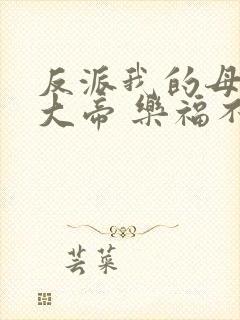 反派我的母
大帝 樂福不
芸菜